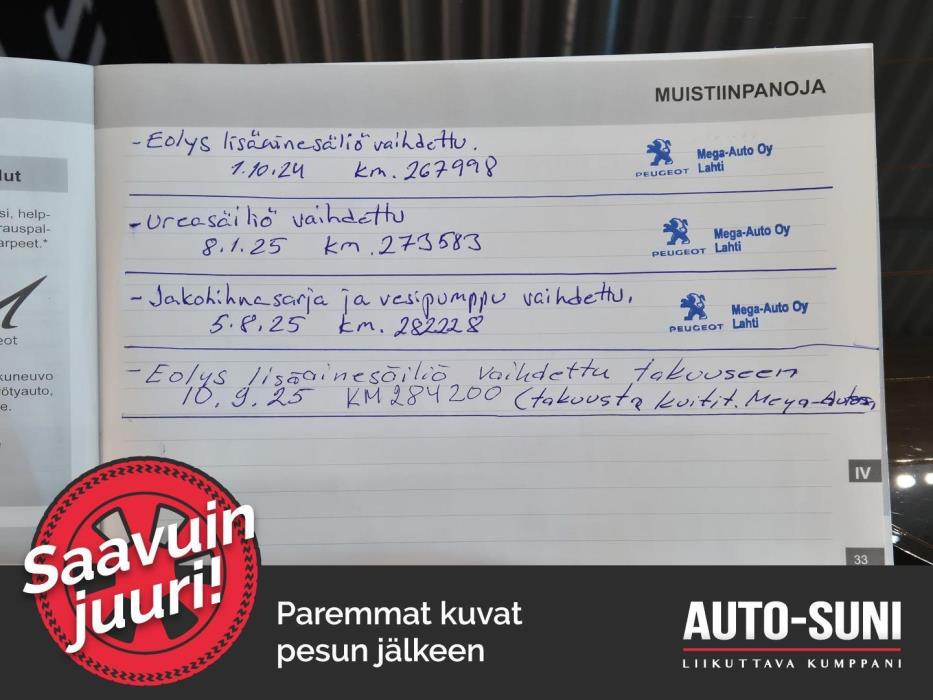 MUISTIINPANOJA
- Eolys lisäainesäiliö vaihdettu.
1.10.24 km. 267998
PEUGEOT
Mega-Auto Oy
Lahti
- Ureasäiliö vaihdettu
8.1.25 km. 273583
PEUGEOT
Mega-Auto Oy
Lahti
- Jakohihnasarja ja vesipumppu vaihdettu.
5.8.25 km. 282228
PEUGEOT
Mega-Auto Oy
Lahti
- Eolys lisäainesäiliö vaihdettu takuuseen
10.9.25 KM 284200 (takuusta kuitit. Mega-
lut
si, help-
rauspal-
arpeet.*
eot
kuneuvo
ötyauto,
e.
IV
33
Saavuin
juuri!
Paremmat kuvat
pesun jälkeen
AUTO-SUNI
LIIKUTTAVA KUMPPANI